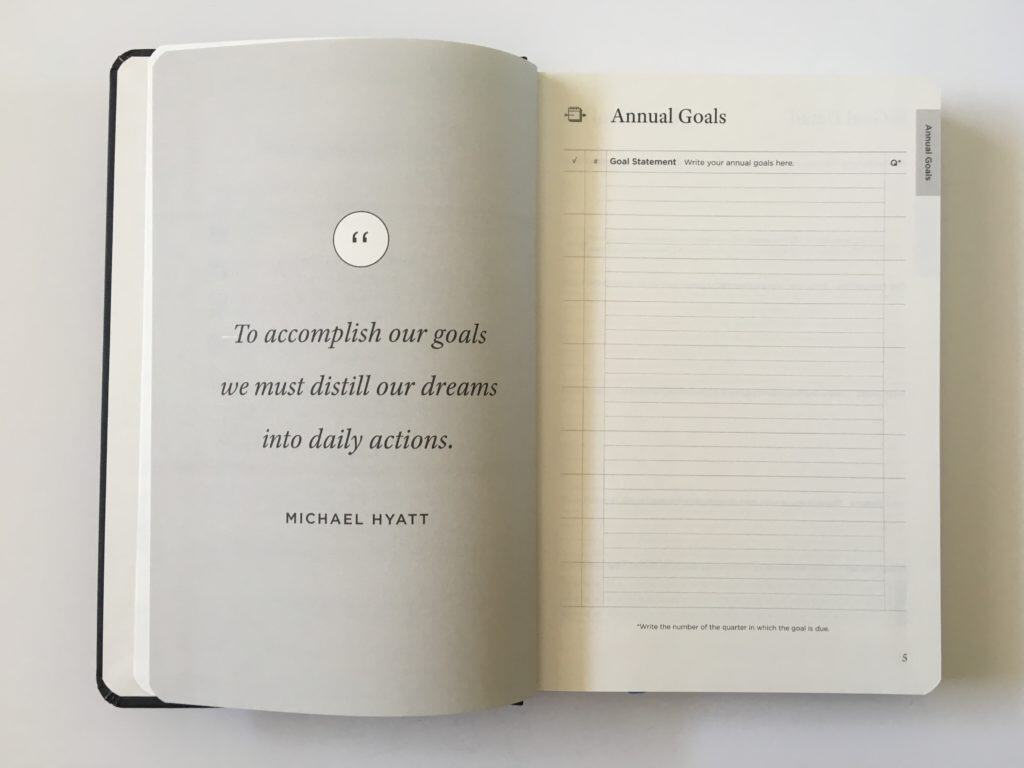 “
To accomplish our goals
we must distill our dreams
into daily actions.
MICHAEL HYATT
Annual Goals
√ # Goal Statement Write your annual goals here. Q*
Annual Goals
*Write the number of the quarter in which the goal is due.
5